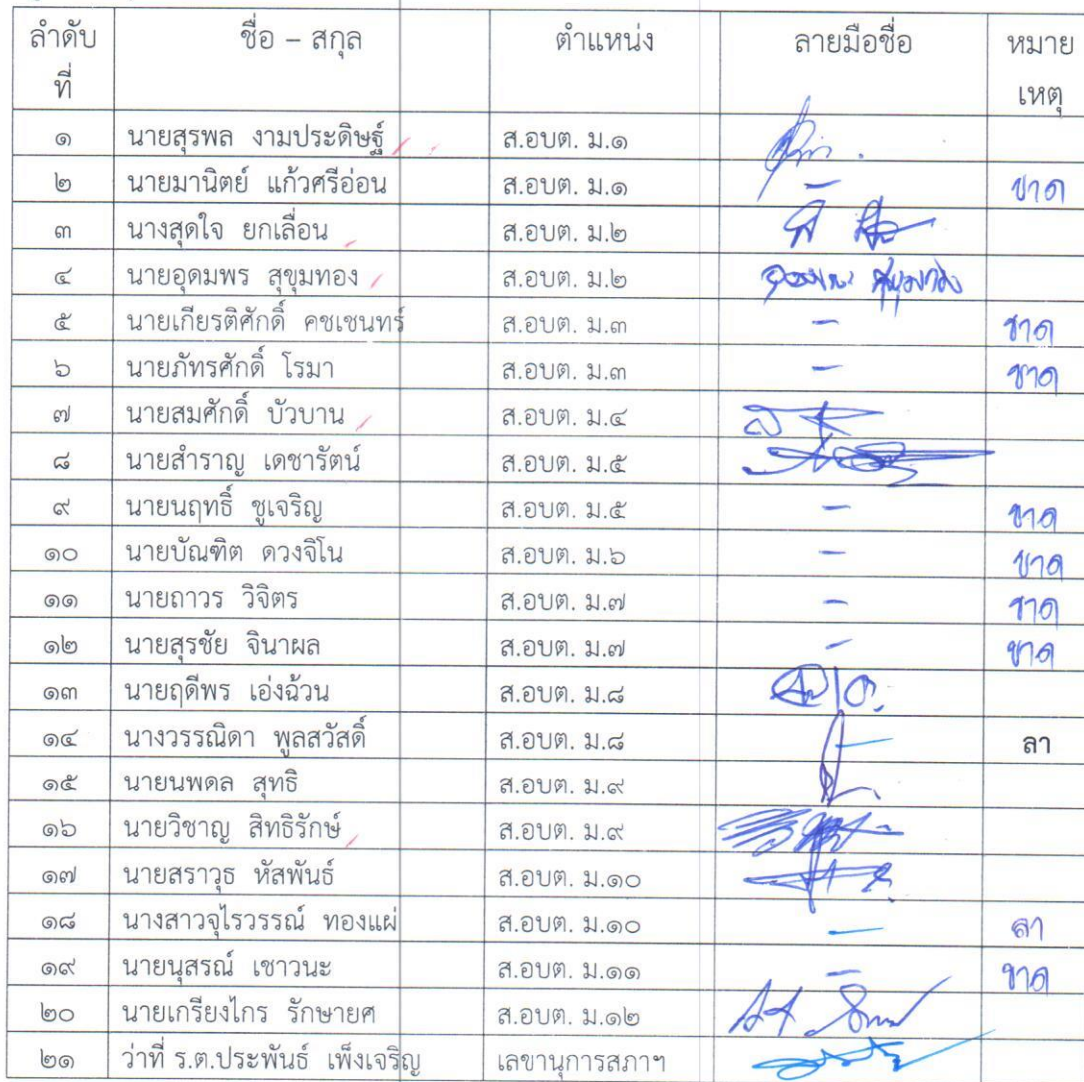 ลำดับที่ ชื่อ – สกุล ตำแหน่ง ลายมือชื่อ หมายเหตุ
๑ นายสุรพล งามประดิษฐ์ ส.อบต. ม.๑
๒ นายมานิตย์ แก้วศรีอ่อน ส.อบต. ม.๑ – ขาด
๓ นางสุดใจ ยกเลื่อน ส.อบต. ม.๒
๔ นายอุดมพร สุขุมทอง ส.อบต. ม.๒ อุดมพร สุขุมทอง
๕ นายเกียรติศักดิ์ คชเชนทร์ ส.อบต. ม.๓ – ขาด
๖ นายภัทรศักดิ์ โรมา ส.อบต. ม.๓ – ขาด
๗ นายสมศักดิ์ บัวบาน ส.อบต. ม.๔
๘ นายสำราญ เดชารัตน์ ส.อบต. ม.๕
๙ นายนฤทธิ์ ชูเจริญ ส.อบต. ม.๕ – ขาด
๑๐ นายบัณฑิต ดวงจิโน ส.อบต. ม.๖ – ขาด
๑๑ นายถาวร วิจิตร ส.อบต. ม.๗ – ขาด
๑๒ นายสุรชัย จินาผล ส.อบต. ม.๗ – ขาด
๑๓ นายฤดีพร เอ่งฉ้วน ส.อบต. ม.๘
๑๔ นางวรรณิดา พูลสวัสดิ์ ส.อบต. ม.๘ – ลา
๑๕ นายนพดล สุทธิ ส.อบต. ม.๙
๑๖ นายวิชาญ สิทธิรักษ์ ส.อบต. ม.๙
๑๗ นายสราวุธ หัสพันธ์ ส.อบต. ม.๑๐
๑๘ นางสาวจุไรวรรณ์ ทองแผ่ ส.อบต. ม.๑๐ – ลา
๑๙ นายนุสรณ์ เชาวนะ ส.อบต. ม.๑๑ – ขาด
๒๐ นายเกรียงไกร รักษายศ ส.อบต. ม.๑๒
๒๑ ว่าที่ ร.ต.ประพันธ์ เพ็งเจริญ เลขานุการสภาฯ